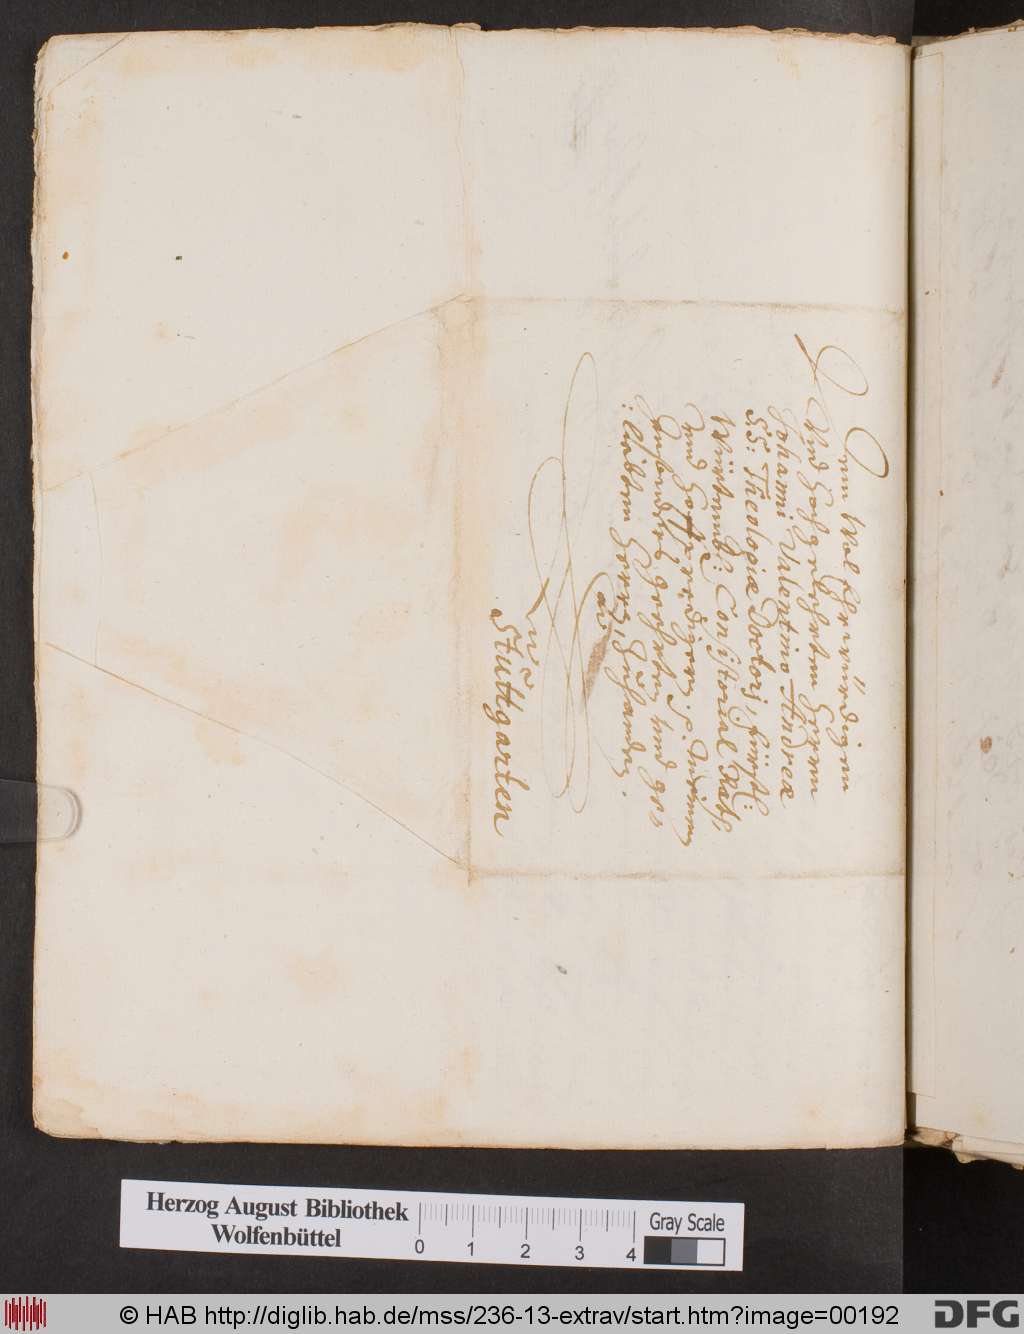 Dem Wol Ehrwürdigen
Und Hochgelehrten Herrn
Johanni Valentino Andreæ
SS: Theologiæ Doctori, Fürstl:
Würtemb: Consistorial Rath,
und Hoffpredigern, p. Meinem
Insonders geehrten und ge„
liebten Herrn, zuhanden.
Zu
Stuttgarten
Herzog August Bibliothek
Wolfenbüttel
0 1 2 3 4
Gray Scale
© HAB http://diglib.hab.de/mss/236-13-extrav/start.htm?image=00192
DFG